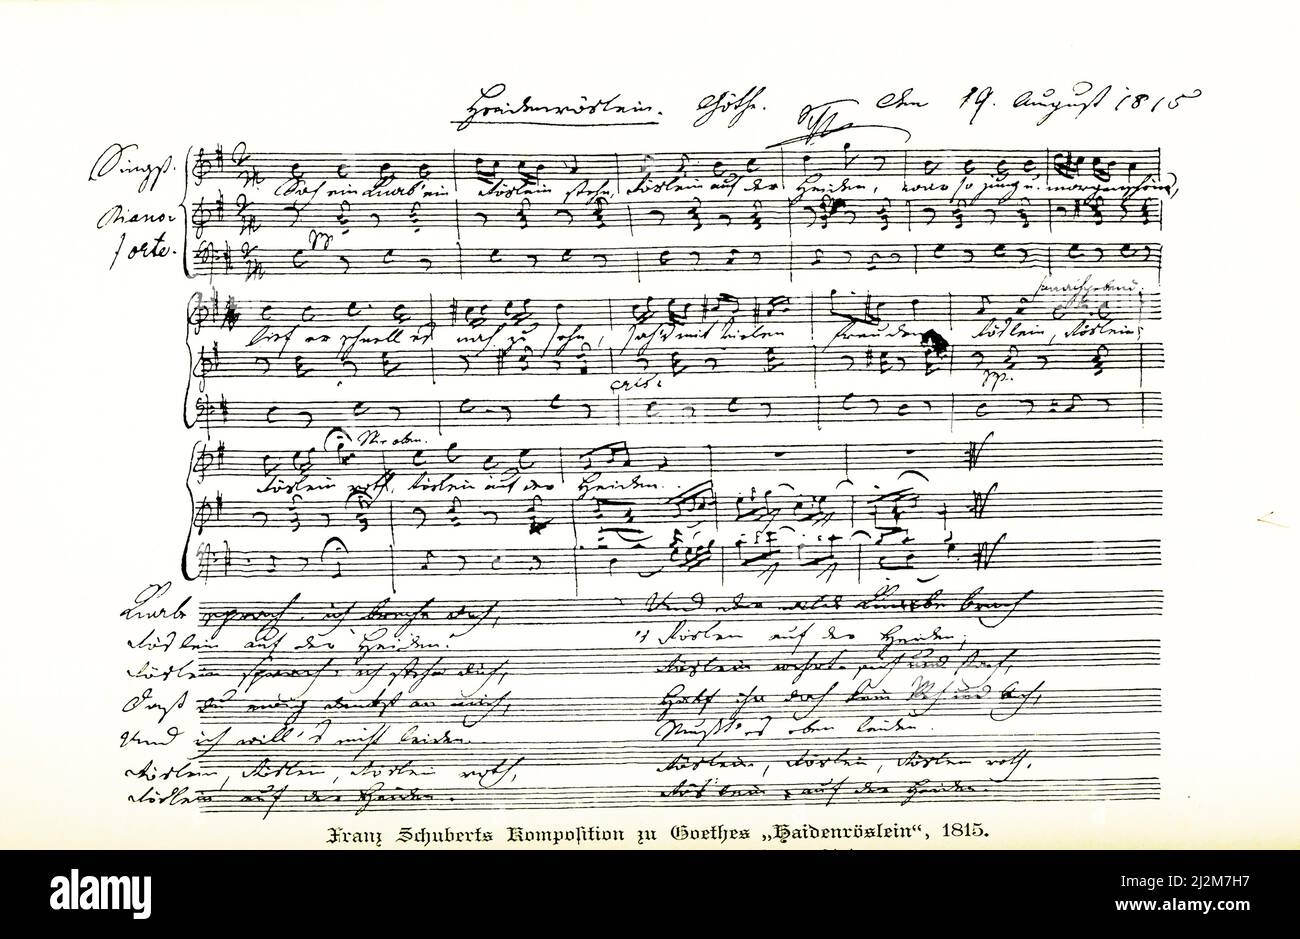 Heidenröslein. Göthe. Den 19. August 1815
Singst.
Sah ein Knab' ein Röslein stehn, Röslein auf der Heiden, war so jung u. morgenschön,
Piano-
forte.
pp
nachgebend
lief er schnell es nah zu sehn, sah's mit vielen Freuden Röslein, Röslein,
cres.
pp.
Wie oben.
Röslein roth, Röslein auf der Heiden.
Knabe sprach: ich breche dich,
Röslein auf der Heiden.
Röslein sprach: ich steche dich,
Daß du ewig denkst an mich,
Und ich will's nicht leiden.
Röslein, Röslein, Röslein roth,
Röslein auf der Heiden.
Und der wilde Knabe brach
's Röslein auf der Heiden;
Röslein wehrte sich und stach,
Half ihr doch kein Weh und Ach,
Mußt' es eben leiden.
Röslein, Röslein, Röslein roth,
Röslein auf der Heiden.
Franz Schuberts Komposition zu Goethes „Haidenröslein“, 1815.
alamy
Image ID: 2J2M7H7
www.alamy.com